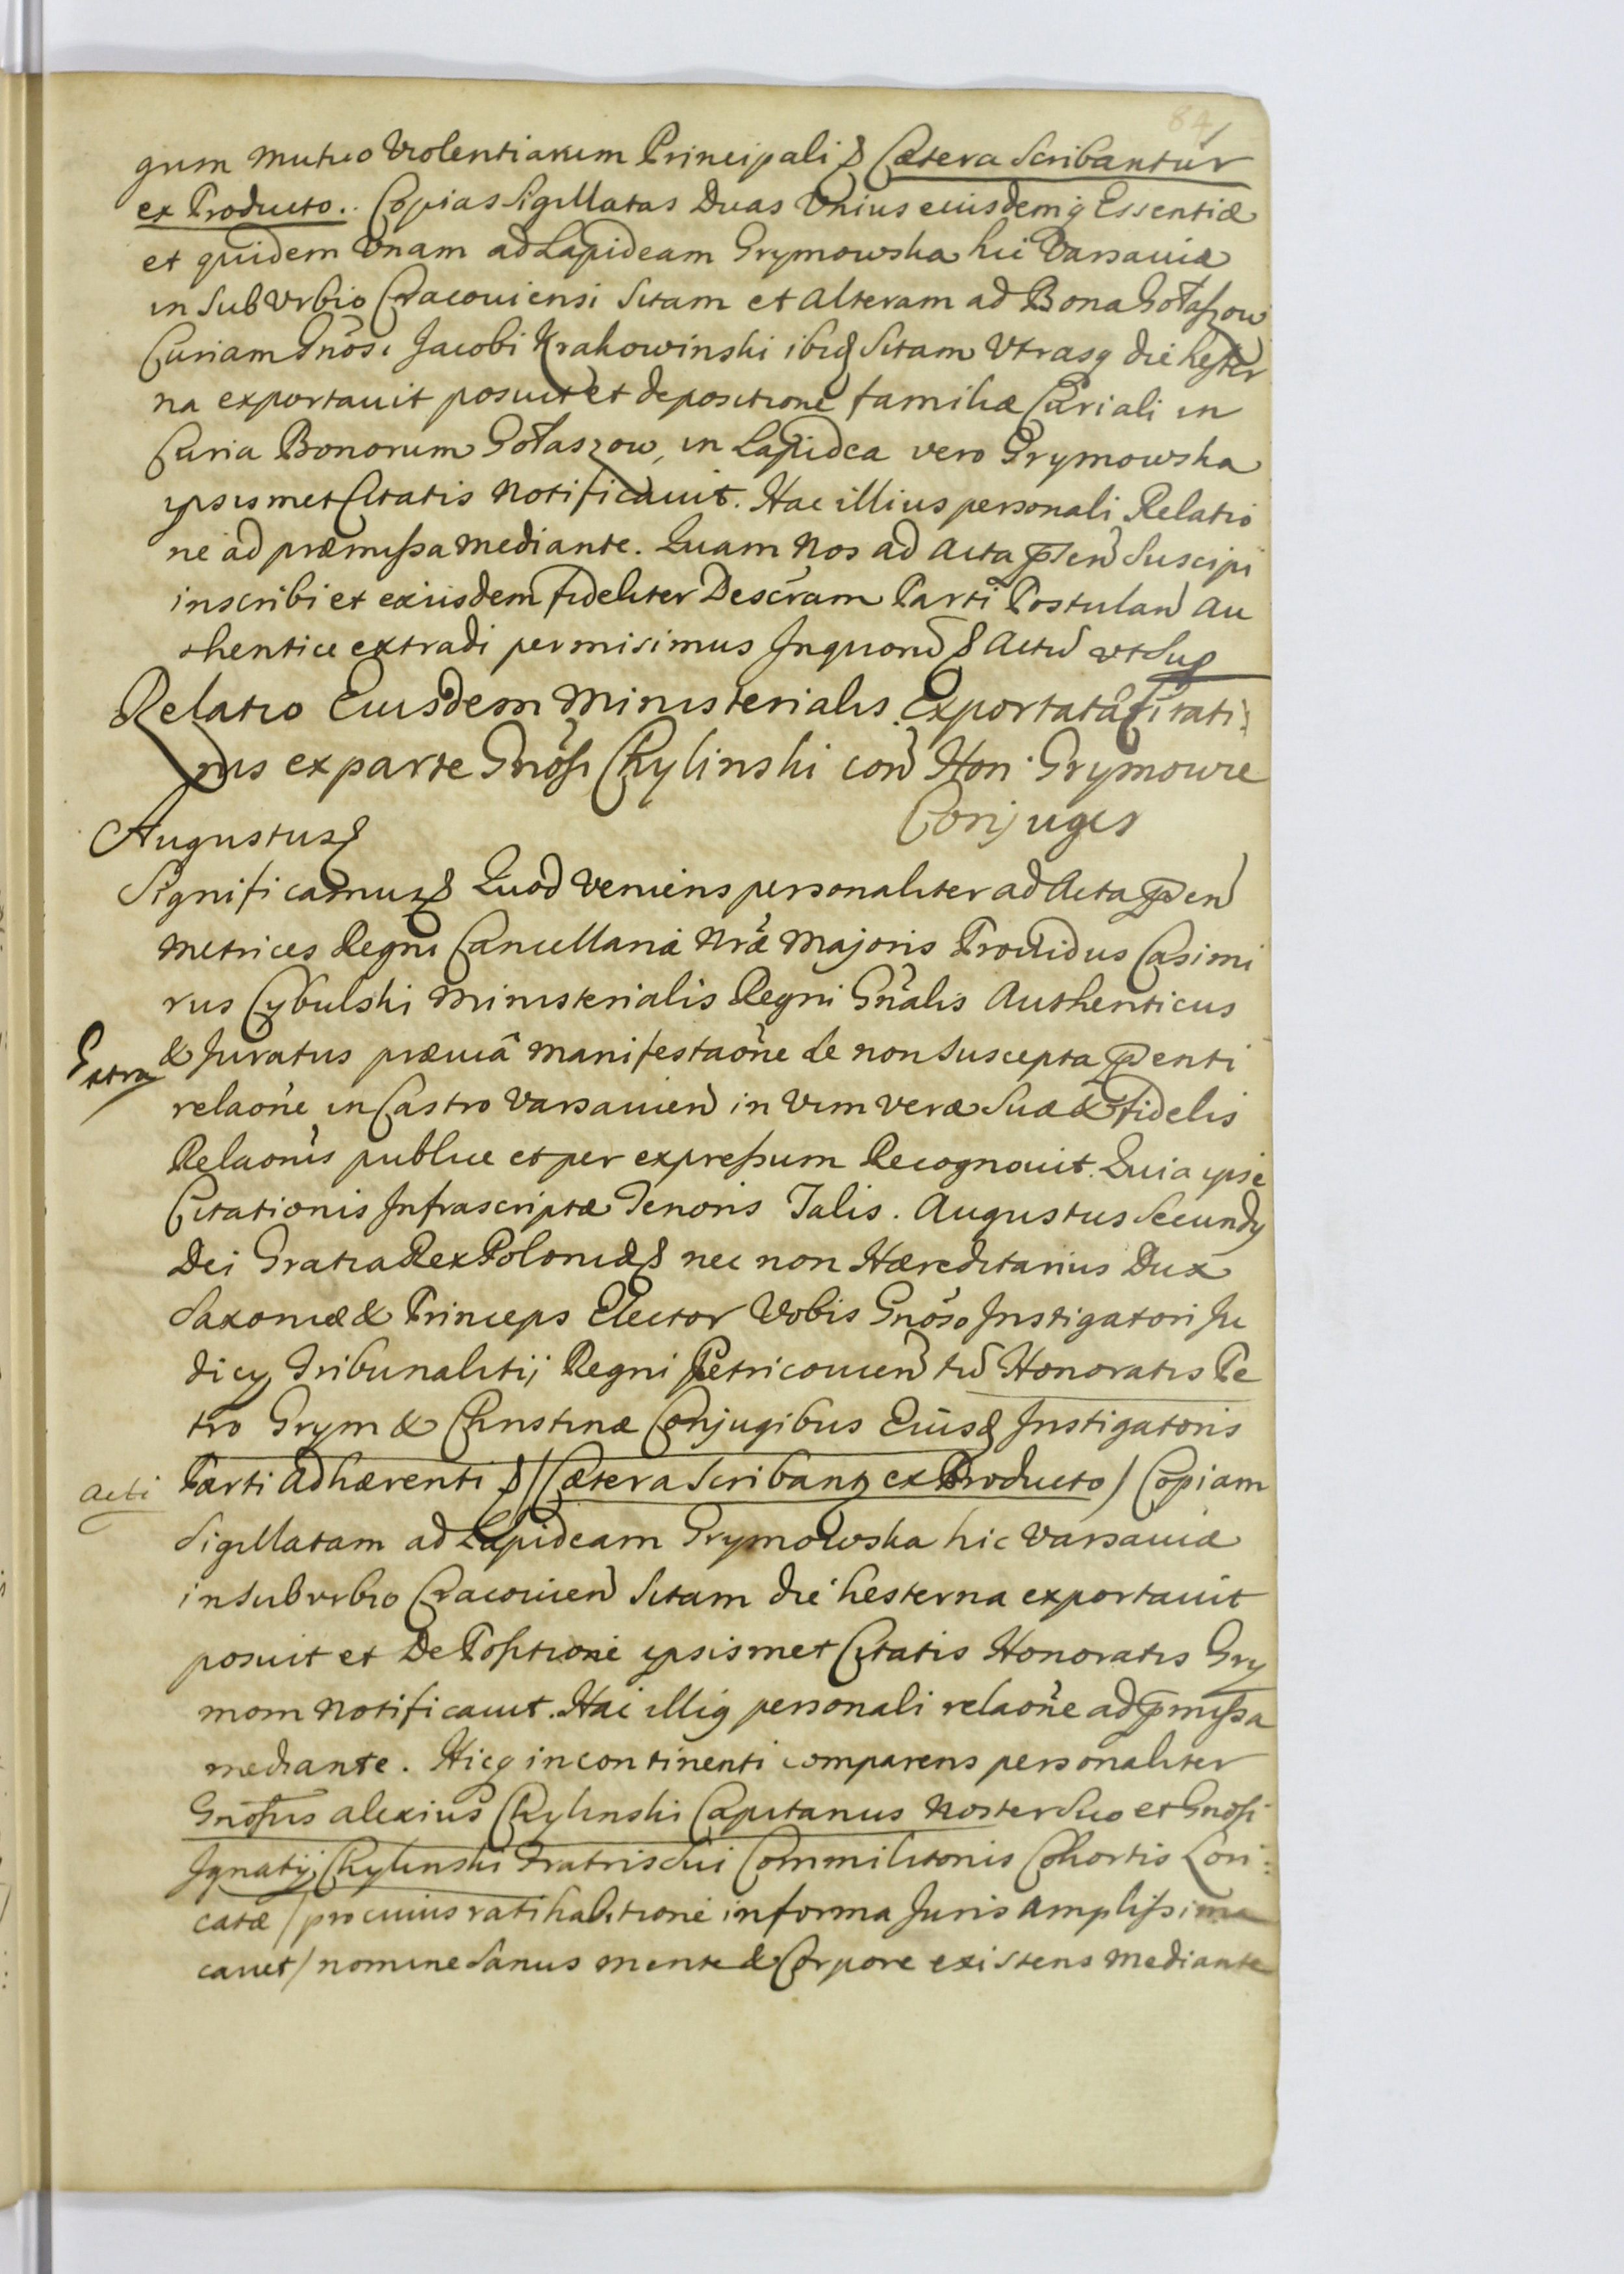 84
gum mutuo Violentiarum Principali & Cætera Scribantur
ex Producto. Copias Sigillatas Duas Unius eiusdemq Essentiæ
et quidem Unam ad Lapideam Grymowska hic Varsaviæ
in SubUrbio Cracoviensi Sitam et Alteram ad Bona Gołaszow
Curiam Gnosi Jacobi Krakowinski ibid Sitam Utrasq die hester
na exportavit posuit et de positione familiæ Curiali in
Curia Bonorum Gołaszow, in Lapidea vero Grymowska
ipsismet Citatis Notificavit. Hac illius personali Relatio
ne ad præmissa mediante. Quam Nos ad Acta pñsen Suscipi
inscribi et eiusdem fideliter Descram Parti Postulan Au
thentice extradi permisimus Inquorũ & Actũ ut Sup
Relatio Eiusdem Ministerialis Exportatã Citati
nis ex parte Gnosi Chylinski con Hon. Grymowie
Conjuges
Augustus &
Significamus & Quod veniens personaliter ad Acta pñen
Metrices Regni Cancellaria Nræ Majoris Providus Casimi
rus Cybulski Ministerialis Regni Gñalis Authenticus
Extra
& Juratus præviâ manifestaõne de non Suscepta pñenti
relaõne in Castro Varsavien in Vim veræ Suæ & fidelis
Relaõnis publice et per expressum Recognovit. Quia ipse
Citationis Infrascriptæ Tenoris Talis. Augustus Secundq
Dei Gratia Rex Poloniæ & nec non Hæreditarius Dux
Saxoniæ & Princeps Elector Vobis Gnoso Instigatori Ju
dicy Tribunalitij Regni Petricovien tũ Honoratis Pe
tro Grym & Christinæ Conjugibus Eiusd Instigatoris
Acti
Parti Adhærenti & / Cætera Scribantq ex Producto / Copiam
Sigillatam ad Lapideam Grymowska hic Varsaviæ
in Suburbio Cracovien Sitam die hesterna exportavit
posuit et De Positione ipsismet Citatis Honoratis Gry
mom Notificavit. Hac illiq personali relaõne ad pmissa
mediante. Hicq in continenti comparens personaliter
Gnosus Alexius Chylinski Capitanus Noster Suo et Gnosi
Ignatij Chylinski Fratris Sui Commilitonis Cohortis Lori:
catæ / pro cuius ratihabitione in forma Juris Amplissima
cavet / nomine Sanus mente & Corpore existens mediante